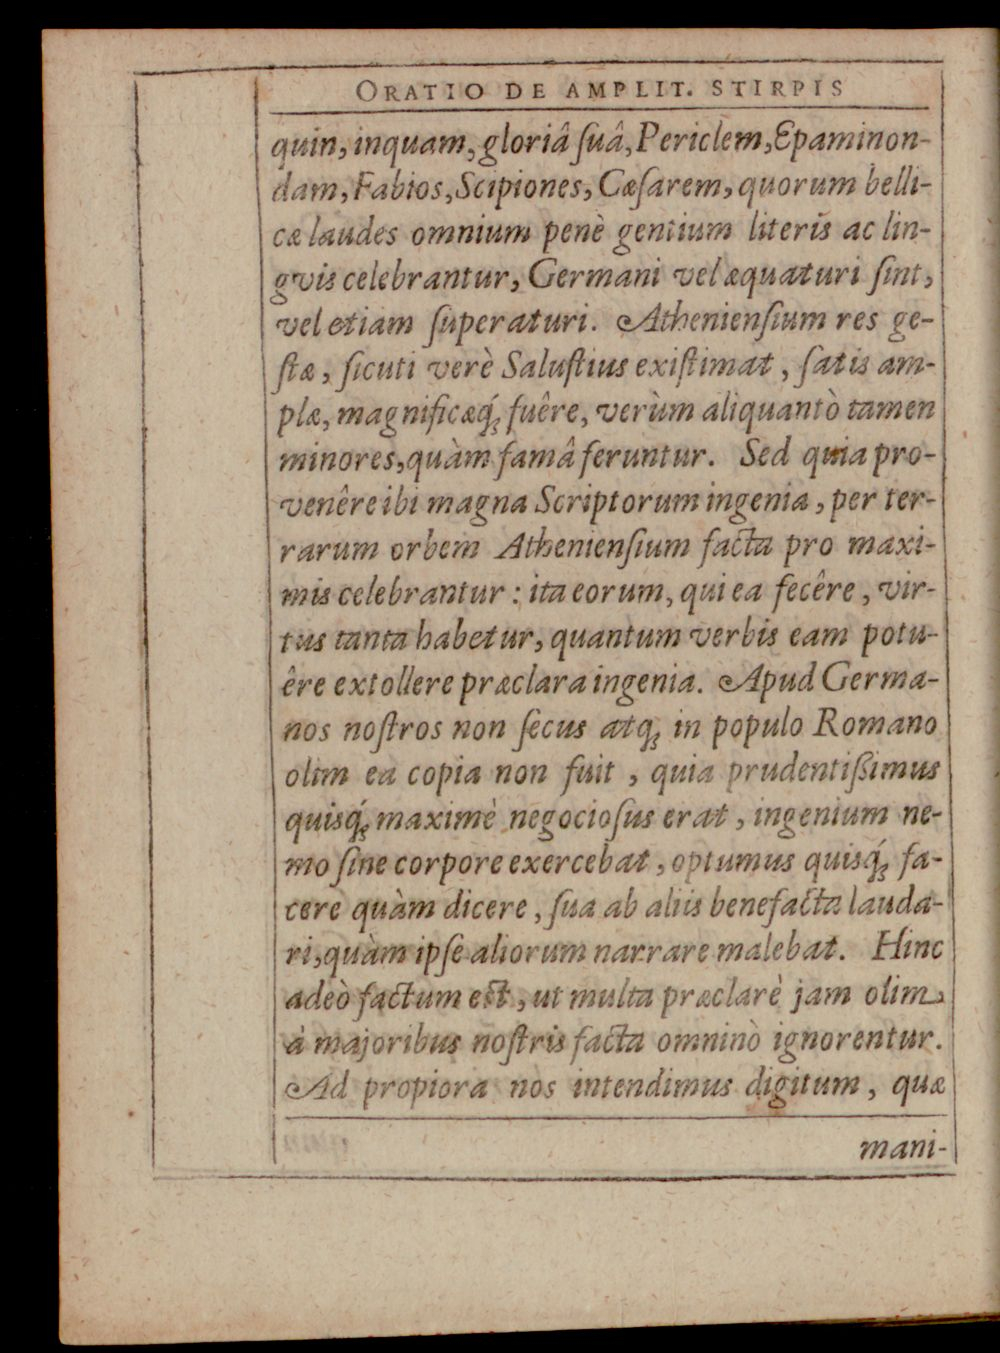 ORATIO DE AMPLIT. STIRPIS
quin, inquam, gloriâ ſuâ, Periclem, Epaminon-
dam, Fabios, Scipiones, Cæſarem, quorum belli-
cæ laudes omnium penè gentium literis ac lin-
gvis celebrantur, Germani vel æquaturi ſint,
vel etiam ſuperaturi. Athenienſium res ge-
ſtæ, ſicuti verè Saluſtius exiſtimat, ſatis am-
plæ, magnificæq́; fuêre, verùm aliquantò tamen
minores, quàm famâ feruntur. Sed quia pro-
venêre ibi magna Scriptorum ingenia, per ter-
rarum orbem Athenienſium facta pro maxi-
mis celebrantur: ita eorum, qui ea fecêre, vir-
tus tanta habetur, quantum verbis eam potu-
êre extollere præclara ingenia. Apud Germa-
nos noſtros non ſecus atq; in populo Romano
olim ea copia non fuit, quia prudentißimus
quisq́; maximè negocioſus erat, ingenium ne-
mo ſine corpore exercebat, optumus quisq́; fa-
cere quàm dicere, ſua ab aliis benefacta lauda-
ri, quàm ipſe aliorum narrare malebat. Hinc
adeò factum est, ut multa præclarè jam olim
à majoribus noſtris facta omninò ignorentur.
Ad propiora nos intendimus digitum, quæ
mani-